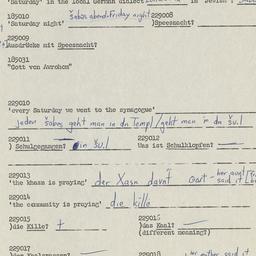 'Saturday' in the local German dialect
185010
'Saturday night' šabəs abend-Friday night 229008
)Speesnacht?
229009
Ausdrücke mit Speesnacht?
185031
"Gott von Avrohom"
229010
'every Saturday we went to the synagogue'
jeden šabəs geht man in də Templ/geht man in də šul
229011
) Schulgegangen? in šul
229012
Was ist Schulklopfen?
229013
'the khazn is praying' der Xazn davnt
229014
'the community is praying' die kille
229015
)die Kille? +
229016
)das Kaal?
(different meaning?)
229017
229018